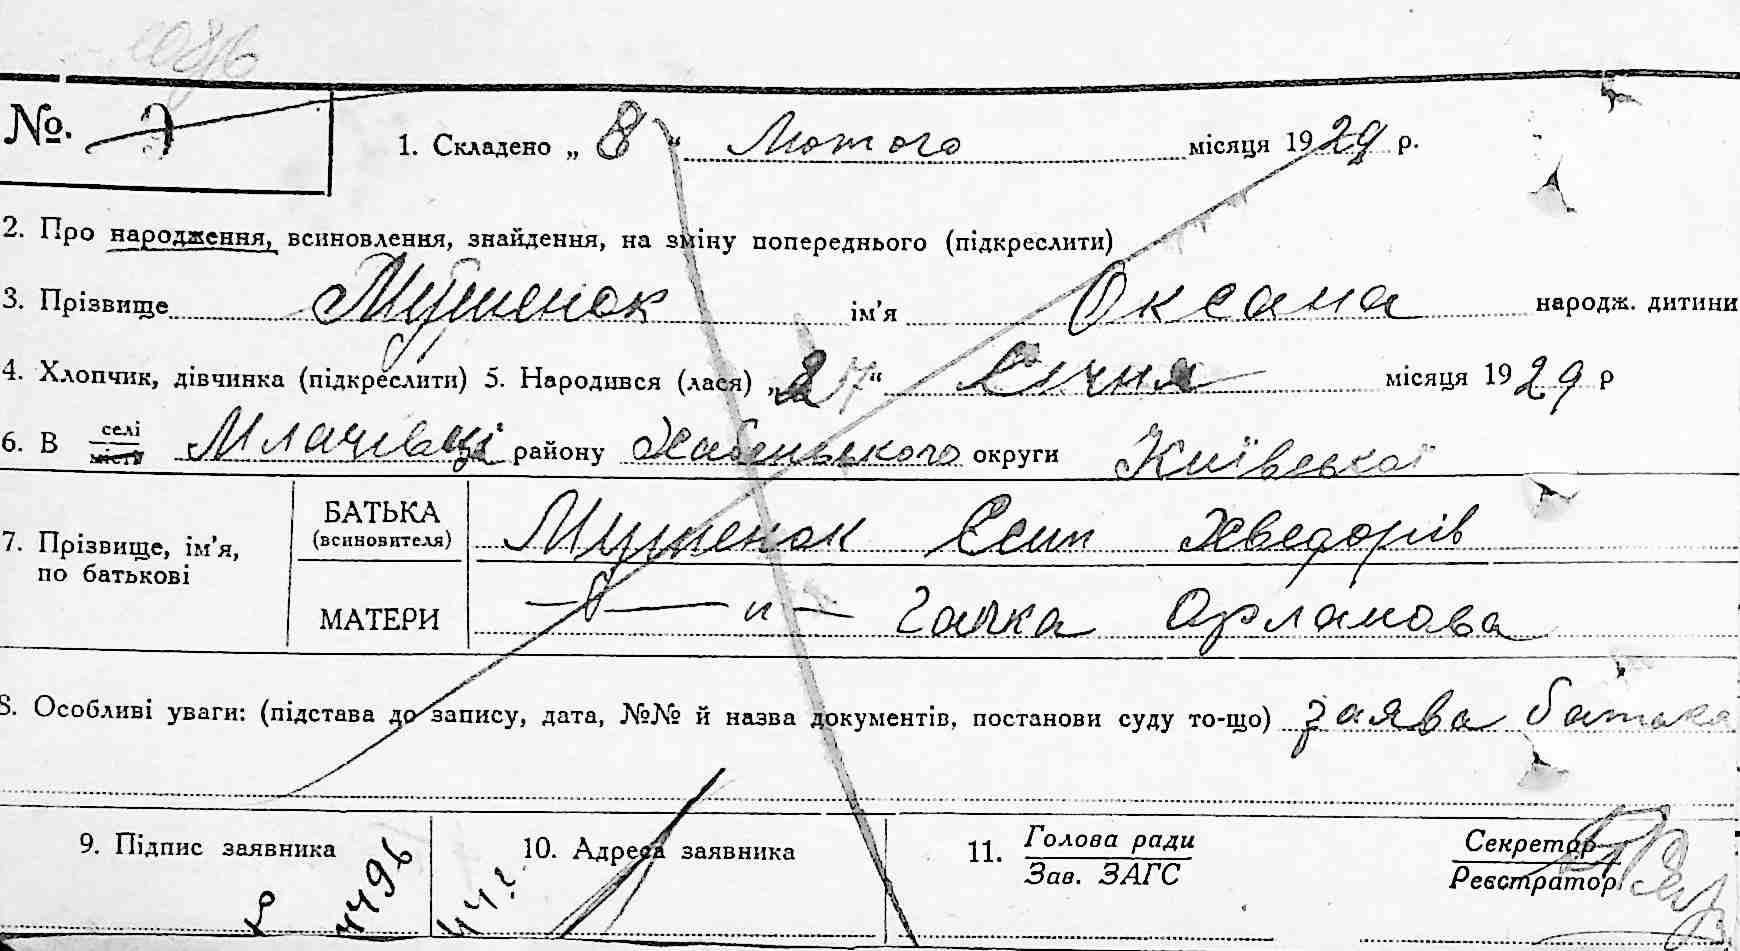 №. 7
1. Складено „ 8 “ Лютого місяця 1929 р.
2. Про народження, всиновлення, знайдення, на зміну попереднього (підкреслити)
3. Прізвище Мушенок ім’я Оксана народж. дитини
4. Хлопчик, дівчинка (підкреслити) 5. Народився (лася) „27“ Січня місяця 1929 р
6. В селі місті Млачівці району Хабенського округи Київської
7. Прізвище, ім’я, по батькові
БАТЬКА (всиновителя) Мушенок Єсип Хведорів
МАТЕРИ —〃— Гапка Орланова
8. Особливі уваги: (підстава до запису, дата, №№ й назва документів, постанови суду то-що) заява батька
9. Підпис заявника
10. Адреса заявника
11. Голова ради
Зав. ЗАГС
Секретар
Реєстратор